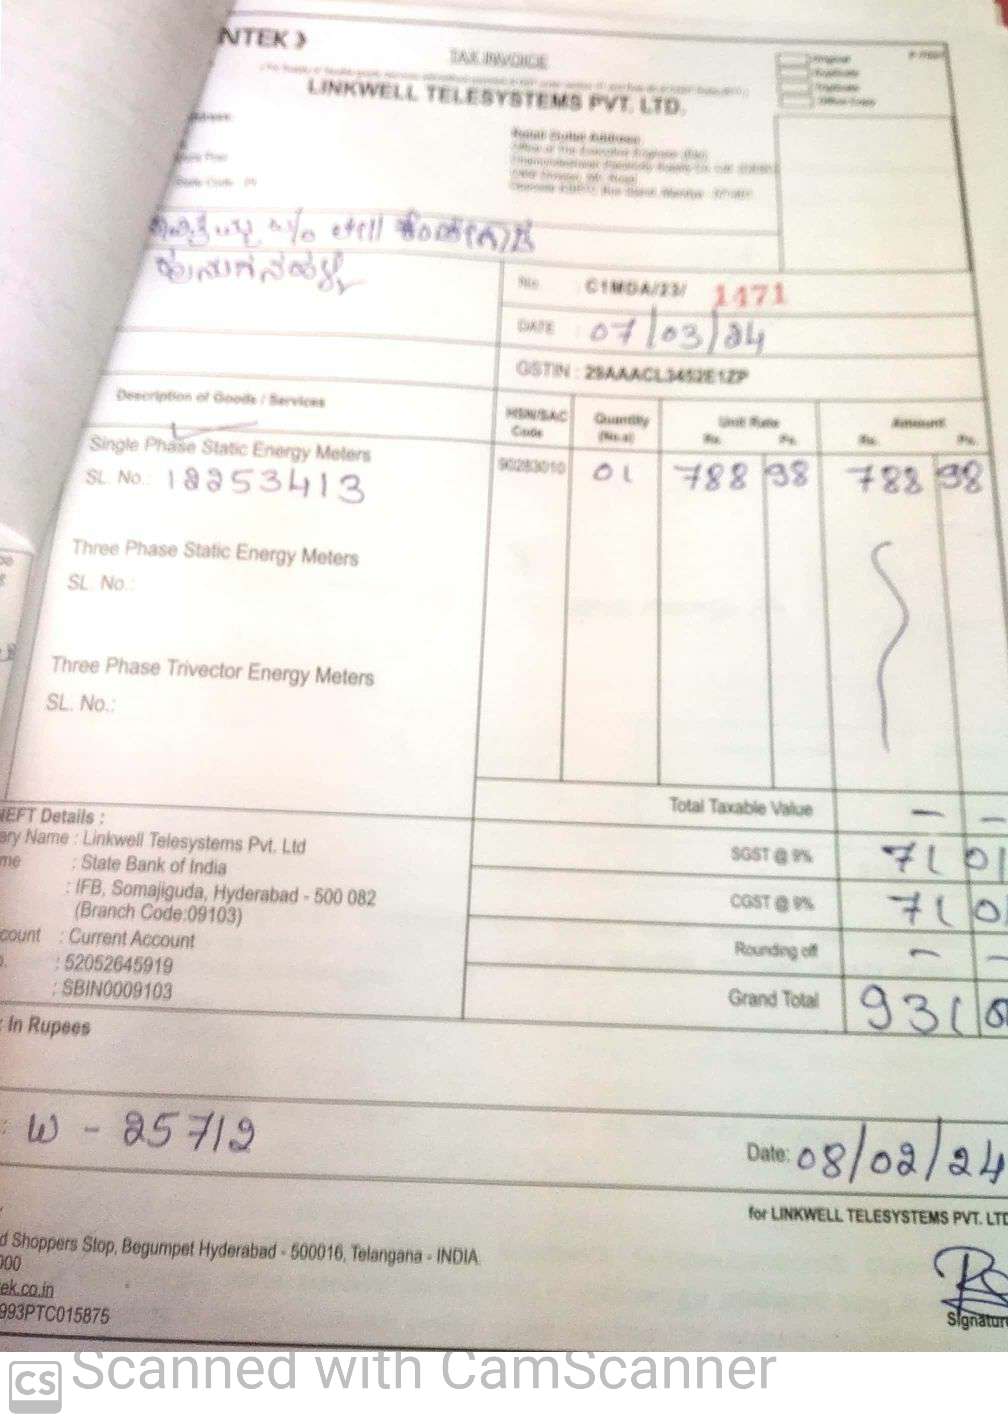 NTEK
TAX INVOICE
LINKWELL TELESYSTEMS PVT. LTD.
Original
Duplicate
Triplicate
Office Copy
Retail Outlet Address
Office of The Executive Engineer (Ele)
No. : C1MDA/23/ 1471
DATE : 07/03/24
GSTIN : 29AAACL3452E1ZP
Description of Goods / Services HSN/SAC Code Quantity (No.s) Unit Rate Rs. Ps. Amount Rs. Ps.
Single Phase Static Energy Meters 90283010 01 788 98 788 98
SL. No.: 12253413
Three Phase Static Energy Meters
SL. No.:
Three Phase Trivector Energy Meters
SL. No.:
Total Taxable Value — —
NEFT Details :
ary Name : Linkwell Telesystems Pvt. Ltd
SGST @ 9% 71 01
me : State Bank of India
: IFB, Somajiguda, Hyderabad - 500 082
CGST @ 9% 71 01
(Branch Code:09103)
count : Current Account
Rounding off — —
: 52052645919
: SBIN0009103
Grand Total 931
: In Rupees
: W - 25712
Date: 08/02/24
for LINKWELL TELESYSTEMS PVT. LTD
d Shoppers Stop, Begumpet Hyderabad - 500016, Telangana - INDIA.
000
ek.co.in
993PTC015875
Signature
CS Scanned with CamScanner